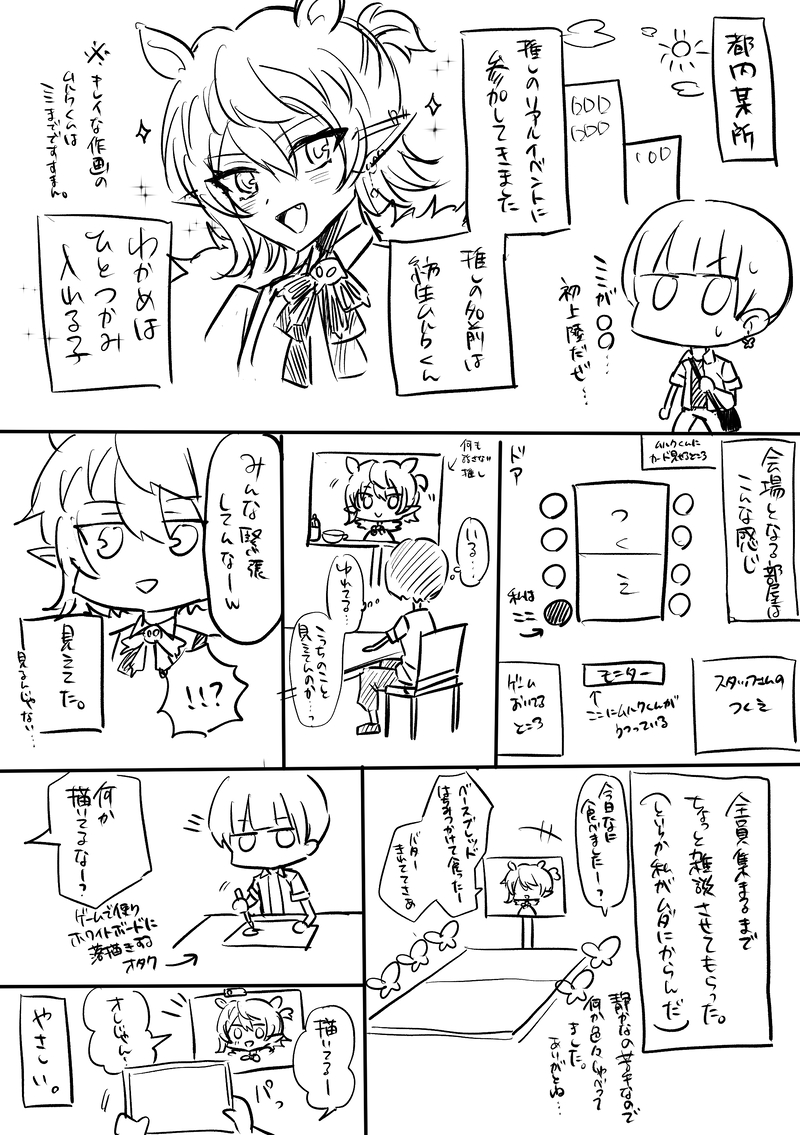 都内某所
推しのリアルイベントに
参加してきました
ここが〇〇…
初上陸だぜ…
推しの名前は
ムルクくん
※キレイな作画の
ムルクくんは
ここまでですすまん。
わかめは
ひとつかみ
入れる子
会場となる部屋は
こんな感じ
ムルクくんに
カード見せるところ
ドア
つくえ
私は
ここ
→
ゲーム
おいてる
ところ
モニター
↑
ここにムルクくんが
うつっている
スタッフさんの
つくえ
何も
話さない
推し
いる…
ゆれてる…
こっちのこと
見えてんのか…っ
みんな緊張
してんなーw
!!?
見えてた。
見るんじゃない…
全員集まるまで
ちょっと雑談させてもらった。
(というか私がムダにからんだ)
今日なに
食べましたー?
ベースブレッド
はちみつつけて食ったー
バター
きれててさぁ
静かなの苦手なので
何か色々しゃべって
ました。
ありがとね…
何か
描いてるなー?
ゲームで使う
ホワイトボードに
落描きする
オタク
→
描いてるー
パっ
オレじゃん!
やさしい。